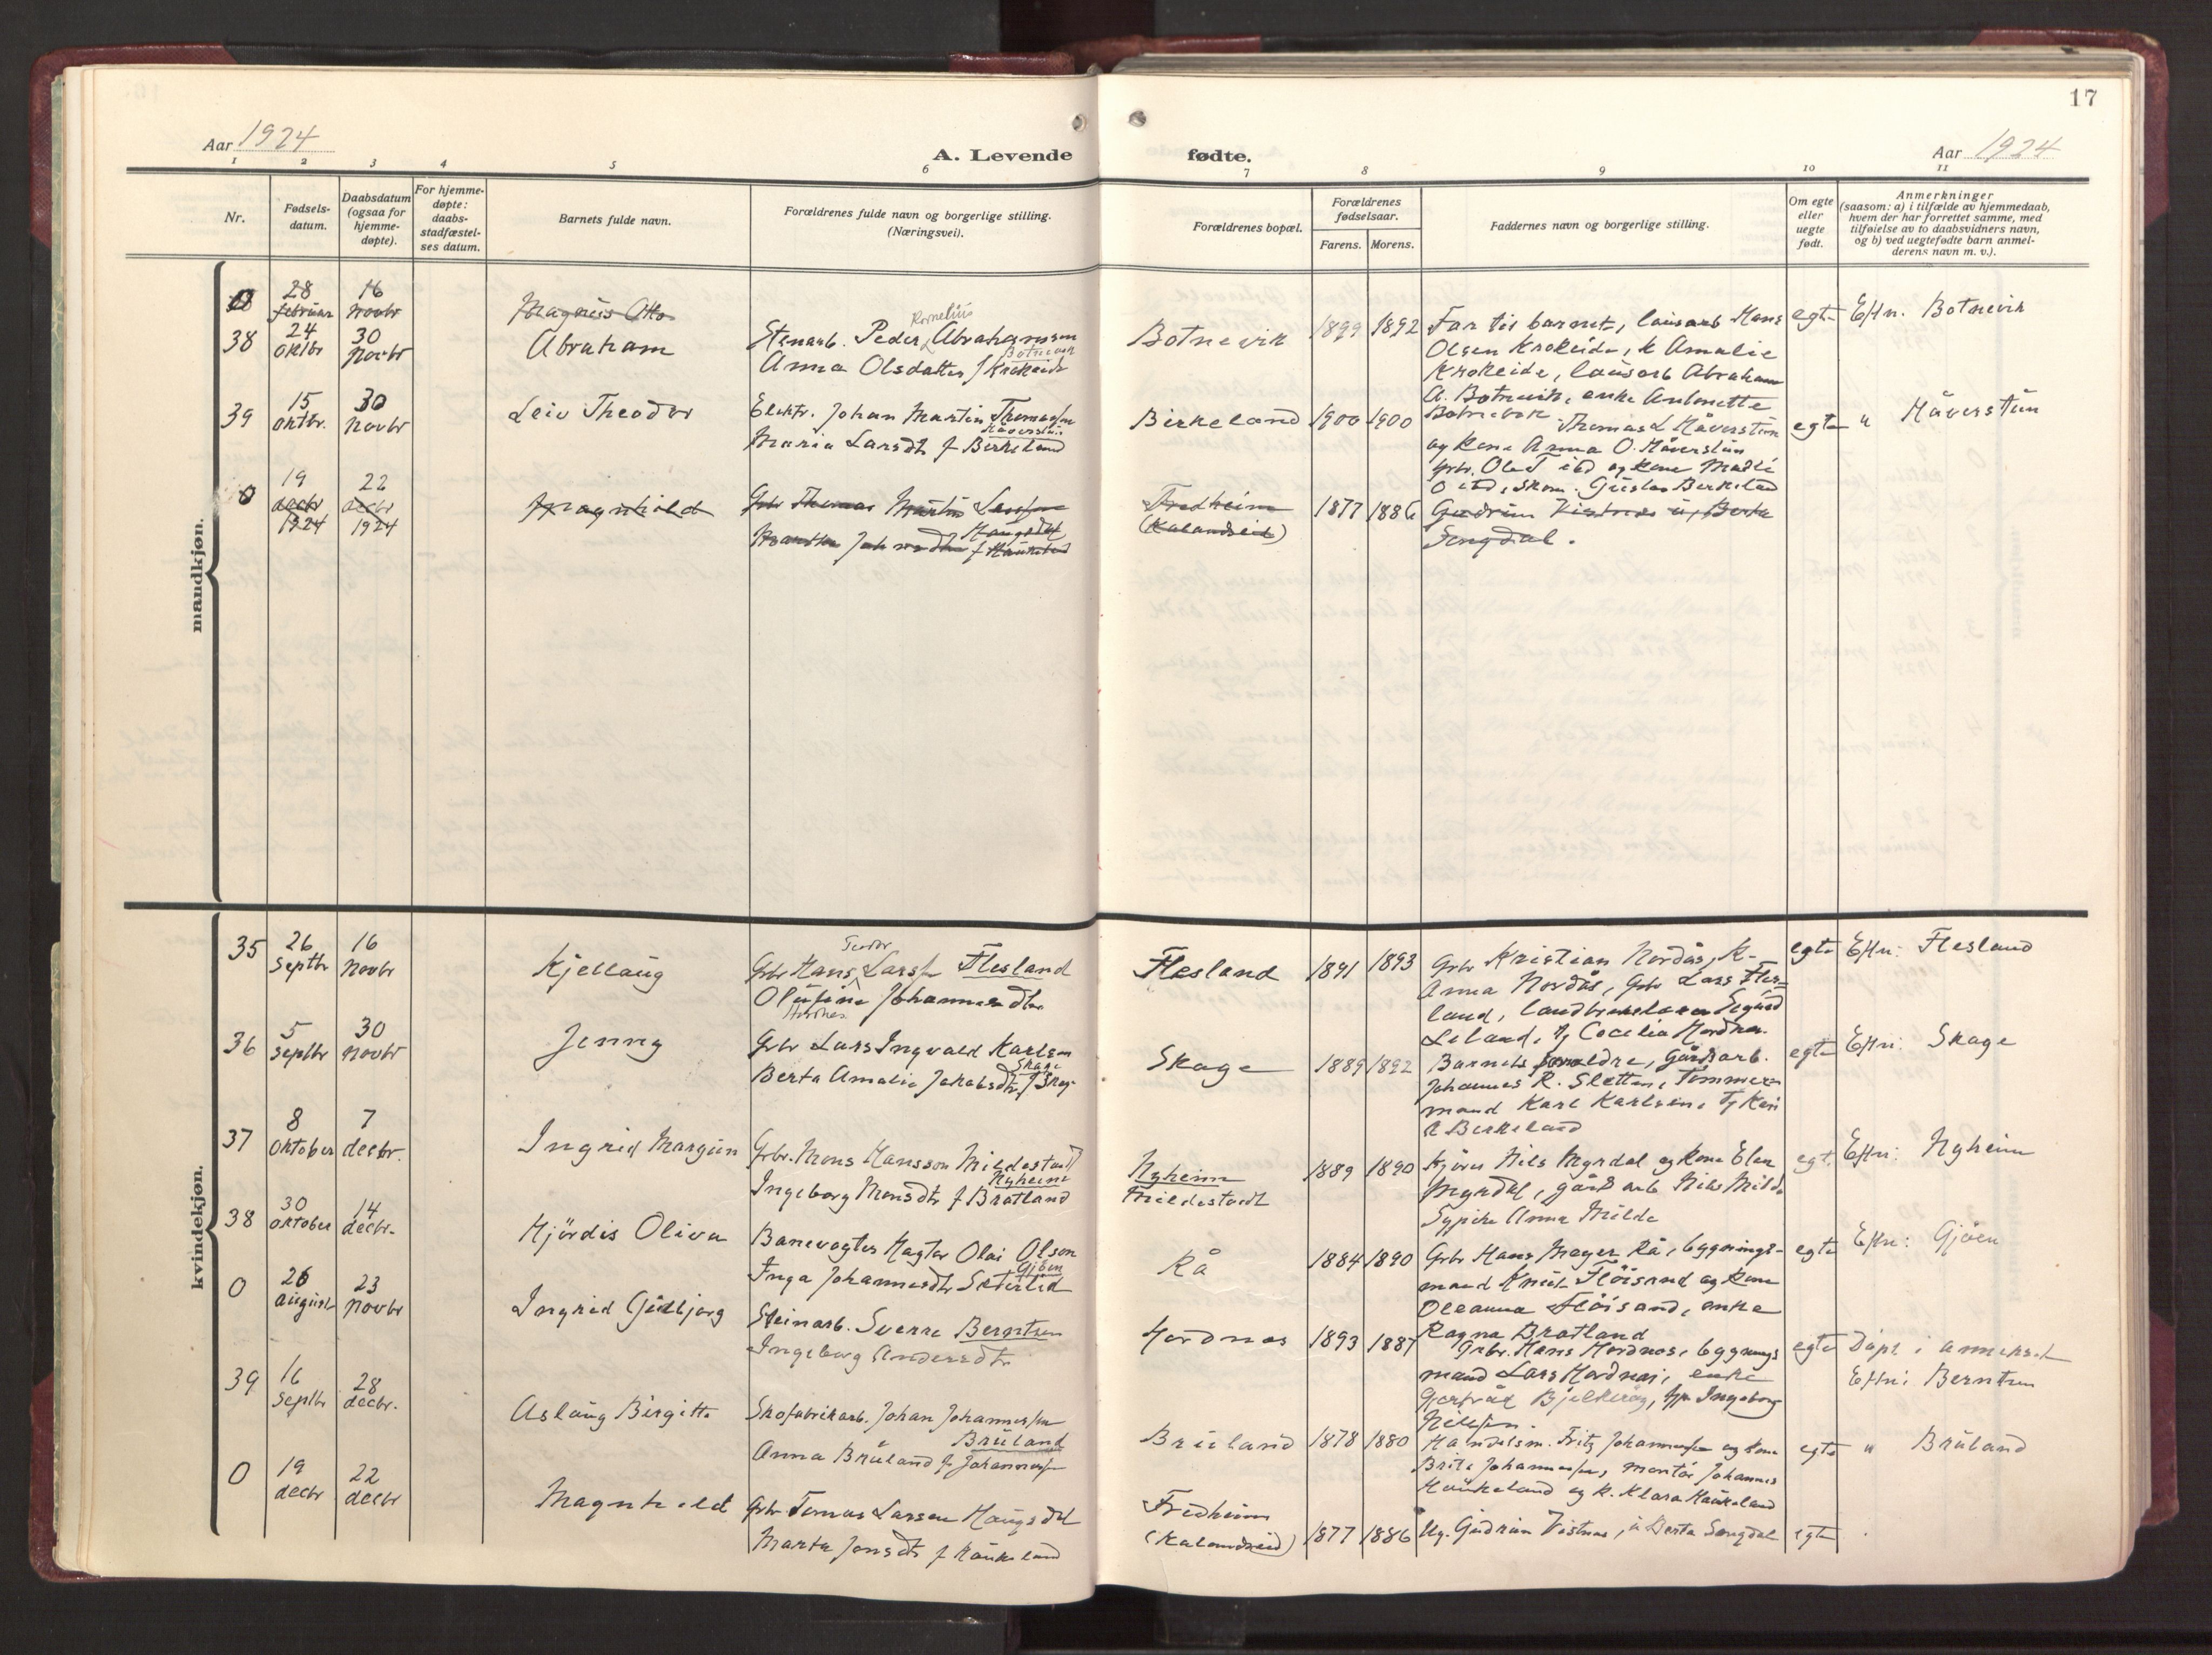 17
Aar 1924
A. Levende
fødte.
Aar 1924
1 2 3 4 5 6 7 8 9 10 11
Nr.
Fødsels-
datum.
Daabsdatum
(ogsaa for
hjemme-
døpte).
For hjemme-
døpte:
daabs-
stadfæstel-
ses datum.
Barnets fulde navn.
Forældrenes fulde navn og borgerlige stilling.
(Næringsvei).
Forældrenes bopæl.
Forældrenes
fødselsaar.
Farens. Morens.
Faddernes navn og borgerlige stilling.
Om egte
eller
uegte
født.
Anmerkninger
(saasom: a) i tilfælde av hjemmedaab,
hvem der har forrettet samme, med
tilføielse av to daabsvidners navn,
og b) ved uegtefødte barn anmel-
derens navn m. v.).
mandkjøn.
28 februar
16 Novbr
Magnus Otto
38
24 oktbr
30 Novbr
Abraham
Stenarb. Peder Kornelius Abrahamsen
Botnevik
Anna Olsdatter f Krokeide
Botnevik
1899 1892
Far til barnet, lausarb Hans
Olsen Krokeide, k Amalie
Krokeide, lausarb Abraham
A. Botnevik, enke Antonette
Botnevik
egte
Eftn. Botnevik
39
15 oktbr.
30 Novbr
Leiv Theodor
Elektr. Johan Martin Thomassen
Håverstun
Maria Larsdtr f Birkeland
Birkeland
1900 1900
Thomas L Håverstun
og kone Anna O. Håverstun
Grbr. Ole T ibd og kone Madli
O ibd, skom. Gustav Birkeland
egte
" Håverstun
0
19 decbr 1924
22 decbr 1924
Magnhild
Grbr Thomas Martin Larssen
Haugsdal
f Haukeland
Fredheim
(Kalandseid)
1877 1886
Gudrun Vistnes u, Berta
Songdal.
kvindekjøn.
35
26 Septbr
16 Novbr
Kjellaug
Grbr Hans Teodor Larss. Flesland
Olufine Johannesdtr
Hordnes
Flesland
1891 1893
Grbr Kristian Nordås, K-
Anna Nordås, Grbr Lars Fles-
land, landbrukslærer Sigurd
Leland, Tj Cecelia Hordnes.
egte
Eftn: Flesland
36
5 Septbr
30 Novbr
Jenny
Grbr Lars Ingvald Karlsen
Skage
Berta Amalie Jakobsdtr f Skage
Skage
1889 1892
Barnets foreldre, Gårdsarb.
Johannes R. Sletten, Tømmer-
mand Karl Karlsen, Tj Kari
R Birkeland
egte
Eftn: Skage
37
8 Oktober
7 decbr.
Ingrid Margun
Grbr. Mons Hansson Mildestvedt
Nyheim
Ingeborg Monsdtr f Bratland
Nyheim
Mildestvedt
1889 1890
Kjører Nils Myrdal og kone Elen
Myrdal, gårdsarb Nils Milde
Sypike Anna Milde
egte
Eftn: Nyheim
38
30 Oktober
14 decbr.
Hjördis Oliva
Banevogter Magtor Olai Olson
Gjöen
Inga Johannesdtr Seterlid
Rå
1884 1890
Grbr Hans Mager Rå, bygnings-
mand Knut Flöisand og kone
Oleanna Flöisand, enke
Ragna Bratland
egte
Eftn: Gjöen
0
26 august
23 Novbr
Ingrid Gudbjorg
Steinarb. Sverre Berntsen
Ingeborg Andersdtr
Hordnes
1893 1887
Grbr. Hans Hordnes, bygnings
mand Lars Hordnes, enke
Gjertrud Bjelkeröy, fr Ingeborg
Nilssen.
egte
Döpt i annekset
Eftn: Berntsen
39
16 Septbr
28 decbr.
Aslaug Birgitte
Skofabrikarb. Johan Johannessen
Bruland
Anna Bruland f Johannessen
Bruland
1878 1880
Handelsm. Fritz Johannessen og kone
Brita Johannessen, montör Johannes
Haukeland og k. Klara Haukeland
egte
" Bruland
0
19 decbr
22 decbr
Magnhild
Grbr Tomas Larsen Haugsdal
Marta Jonsdtr f Haukeland
Fredheim
(Kalandseid)
1877 1886
Ug. Gudrun Vistnes, u Berta Songdal
egte